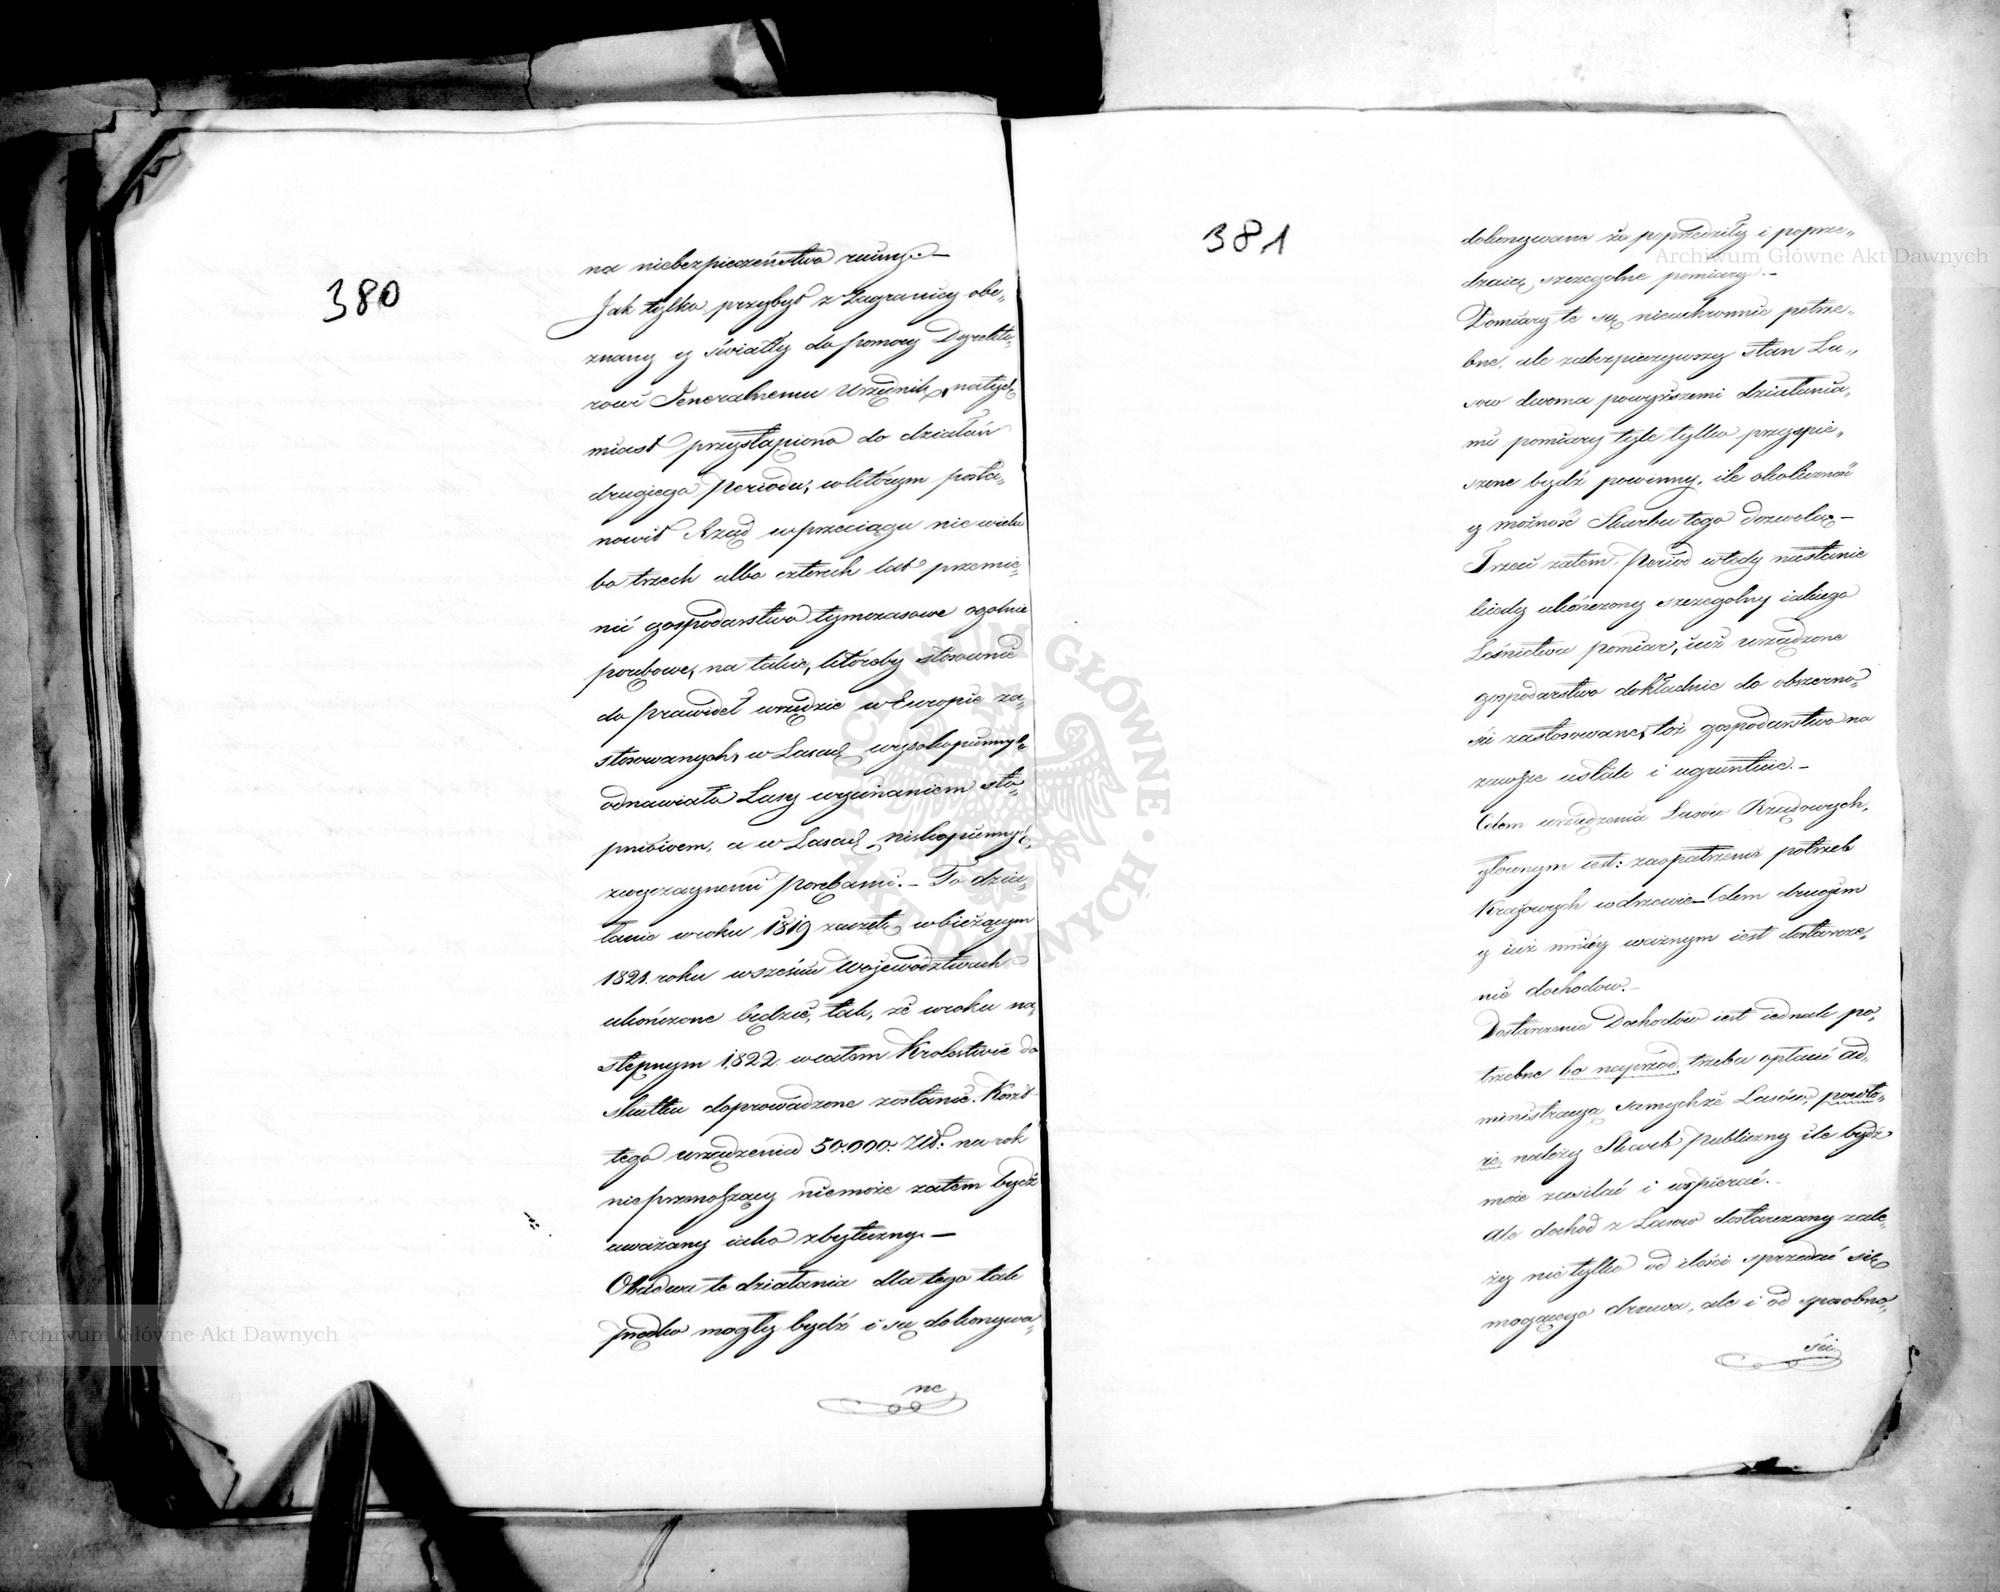 380
na niebezpieczeństwo ruiny. —
Jak tylko przybył z Zagranicy obe„
znany y światły do pomocy Dyrekto„
rowi Jeneralnemu Urzędnik, natych„
miast przystąpiono do działań
drugiego Periodu, w którym posta„
nowił Rząd w przeciągu nie wielu
bo trzech albo czterech lat przemie„
nić gospodarstwo tymczasowe ogolnie
porębowe, na takie, któreby stosownie
do prawideł wszędzie w Europie za„
stosowanych, w Lasach wysokopiennych
odnawiało Lasy wycinaniem sto„
pniowem, a w Lasach niskopiennych
zwyczaynemi porębami. — To dzia„
łanie w roku 1819 zaczęte, w bieżącym
1821. roku w sześciu Województwach
ukończone będzie, tak, że w roku na„
stępnym 1822. w całem Krolestwie do
skutku doprowadzone zostanie. Koszt
tego urządzenia 50.000. Złt: na rok
nieprzenoszący niemoże zatem bydź
uważany iako zbyteczny. —
Obadwa te działania dla tego tak
prędko mogły bydź i są dokonywa„
ne
381
dokonywane że poprzedziły i poprze„
dzaią szczegolne pomiary. —
Pomiary te są nieuchronnie potrze„
bne, ale zabezpieczywszy stan La„
sow dwoma powyższemi działania„
mi pomiary tyle tylko przyspie„
szone bydź powinny, ile okoliczność
y możność Skarbu tego dozwolą —
Trzeci zatem Period wtedy nastanie
kiedy ukończony szczegolny iakiego
Leśnictwa pomiar, iuż urządzone
gospodarstwo dokładnie do obszerno„
ści zastosowane, toż gospodarstwo na
zawsze ustali i ugruntuie. —
Celem urządzenia Lasów Rządowych,
głownym iest: zaopatrzenie potrzeb
Kraiowych w drzewie — Celem drugim
y iuż mniéy ważnym iest dostarcze„
nie dochodow. —
Dostarczenie Dochodów iest iednak po„
trzebne bo naprzód trzeba opłacić ad„
ministracyą samychże Lasów, powtó„
re, należy Skarb Publiczny ile bydź
może zasilać i wspierać. —
Ale dochod z Lasow dostarczany zale„
ży nie tylko od ilości sprzedać się
mogącego drzewa, ale i od sposobno„
ści
Archiwum Główne Akt Dawnych
Archiwum Główne Akt Dawnych
ARCHIWUM GŁÓWNE · AKT DAWNYCH ·